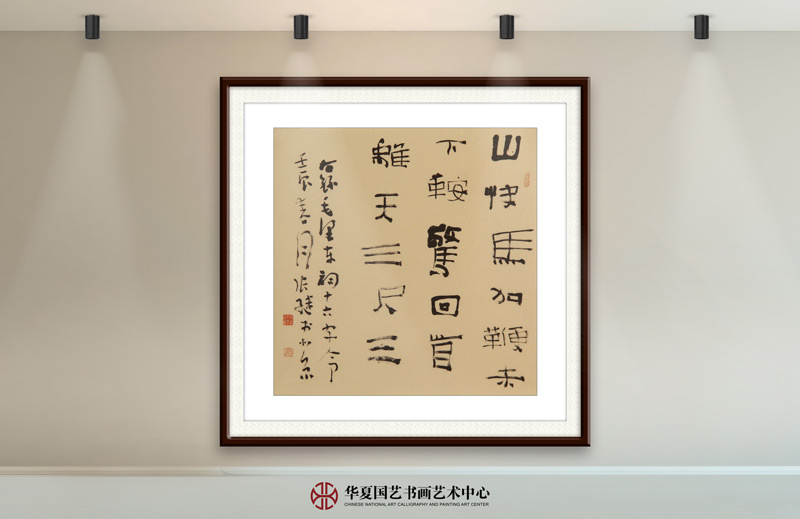 山快馬加鞭未
下鞍驚回首
離天三尺三
右録毛泽东詞十六字令
壬辰春月张继书
华夏国艺书画艺术中心
CHINESE NATIONAL ART CALLIGRAPHY AND PAINTING ART CENTER